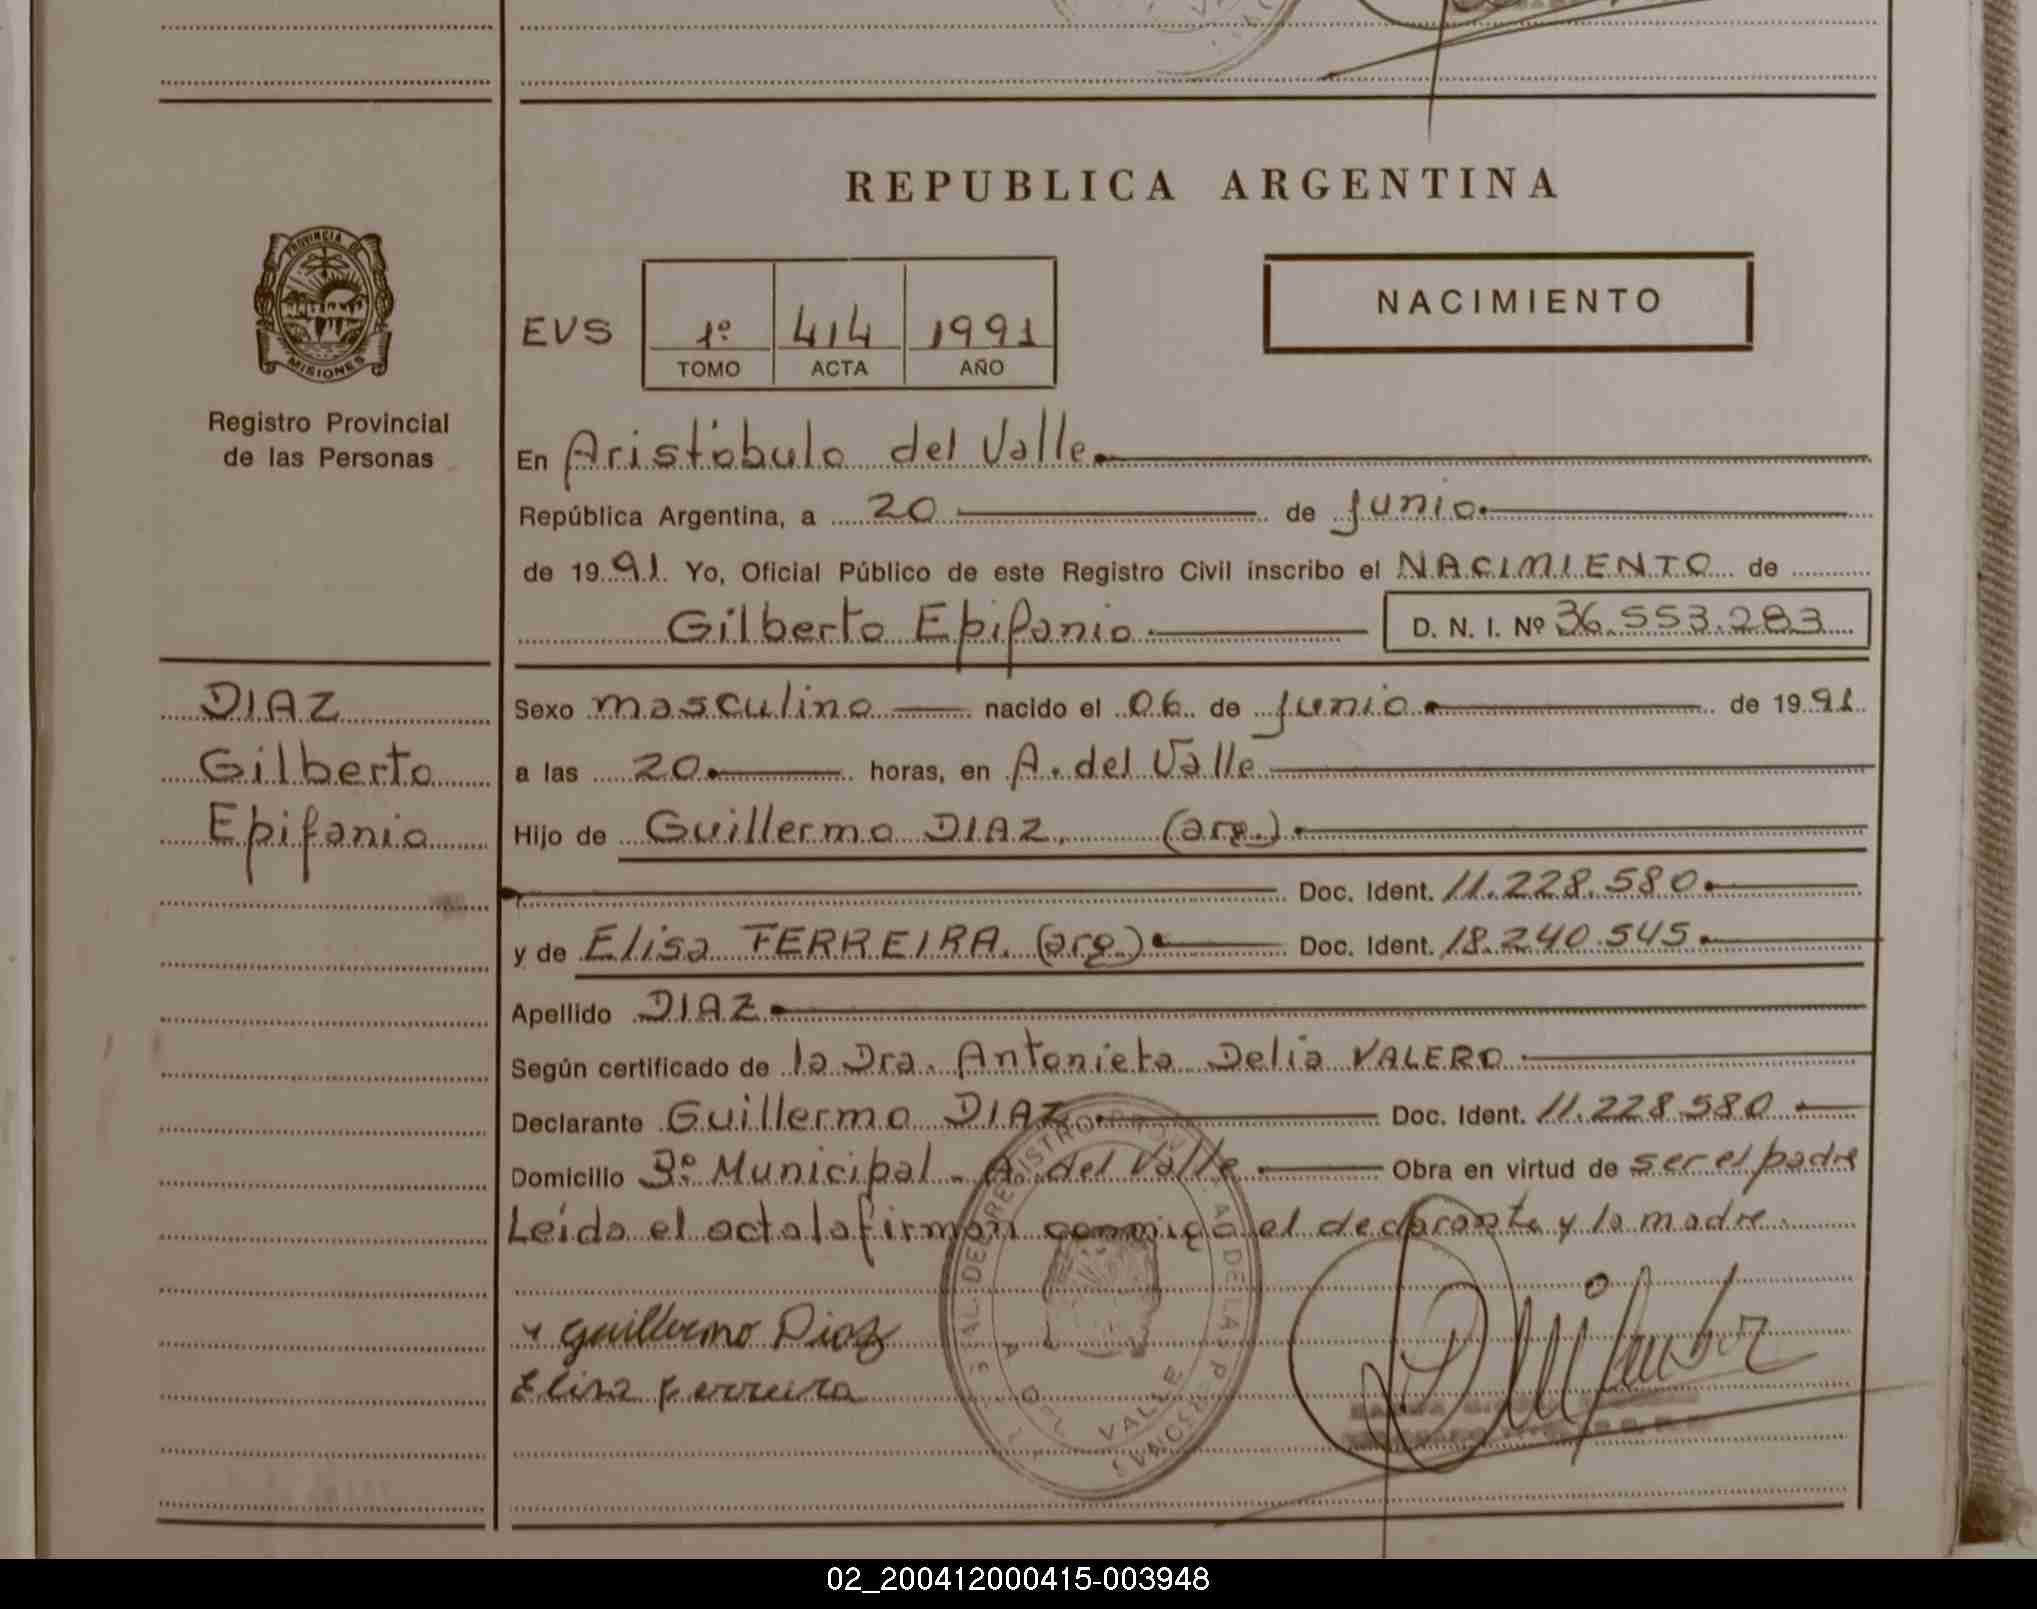 REPUBLICA ARGENTINA
PROVINCIA DE
MISIONES
Registro Provincial
de las Personas
EVS 1º 414 1991
TOMO ACTA AÑO
NACIMIENTO
En Aristóbulo del Valle
República Argentina, a 20 de junio
de 1991. Yo, Oficial Público de este Registro Civil inscribo el NACIMIENTO de
Gilberto Epifanio D. N. I. Nº 36.553.283
DIAZ
Gilberto
Epifanio
Sexo masculino nacido el 06 de junio de 1991
a las 20 horas, en A. del Valle
Hijo de Guillermo DIAZ, (arg.)
Doc. Ident. 11.228.580
y de Elisa FERREIRA. (arg.) Doc. Ident. 18.240.545
Apellido DIAZ
Según certificado de la Dra. Antonieta Delia VALERO
Declarante Guillermo DIAZ Doc. Ident. 11.228.580
Domicilio Bº Municipal - A. del Valle Obra en virtud de ser el padre
Leída el acta la firman conmigo el declarante y la madre.
Guillermo Diaz
Elisa Ferreira
VALLE
02_200412000415-003948